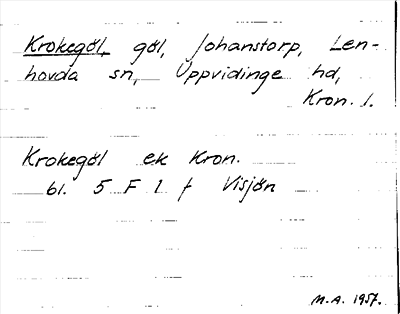 Krokegöl, göl, Johanstorp, Len-
hovda sn, Uppvidinge hd,
Kron. l.
Krokegöl ek Kron.
61. 5 F 1 f Visjön
M.A. 1957.